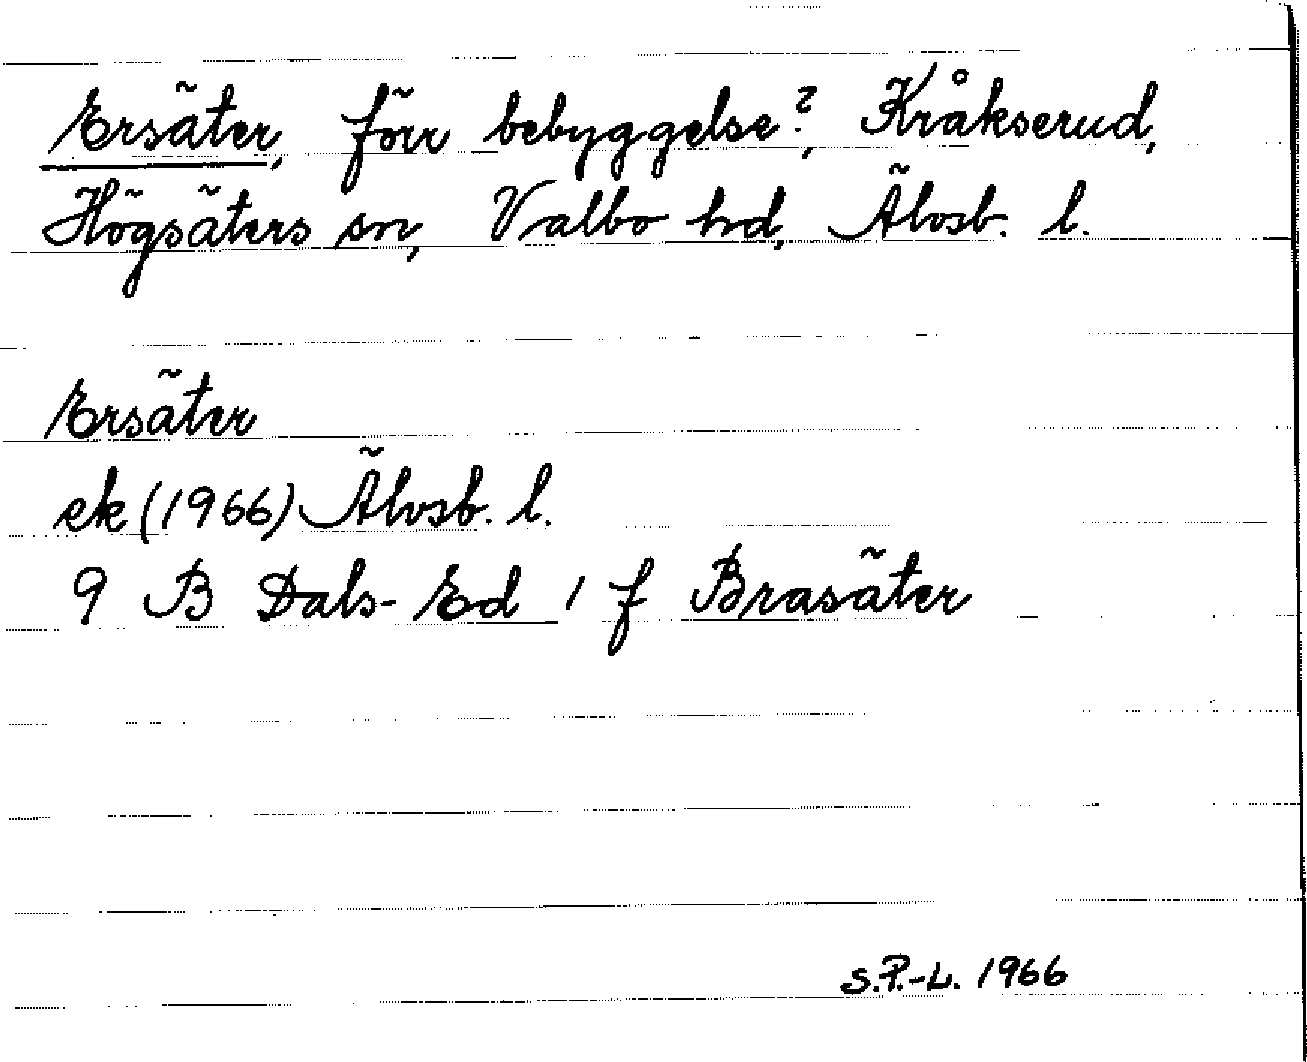 Ersäter, förr bebyggelse?, Kråkserud,
Högsäters sn, Valbo hd, Älvsb. l.
Ersäter
ek (1966) Älvsb. l.
9 B Dals-Ed 1 f Brasäter
S.P.-L. 1966